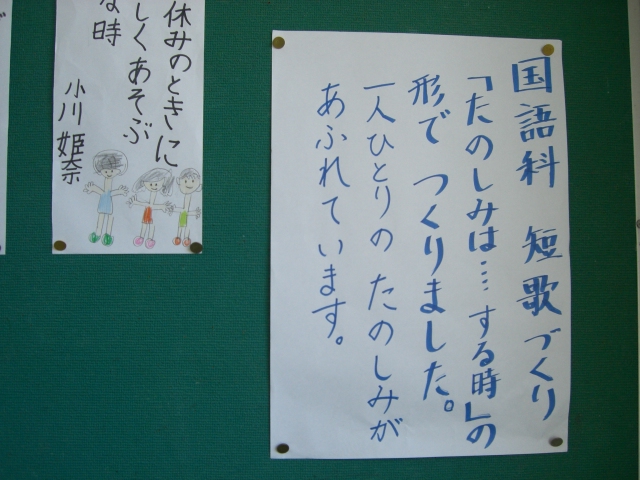 国語科　短歌づくり
「たのしみは……する時」の
形で つくりました。
一人ひとりの たのしみが
あふれています。
休みのときに
しくあそぶ
な時
小川 姫奈